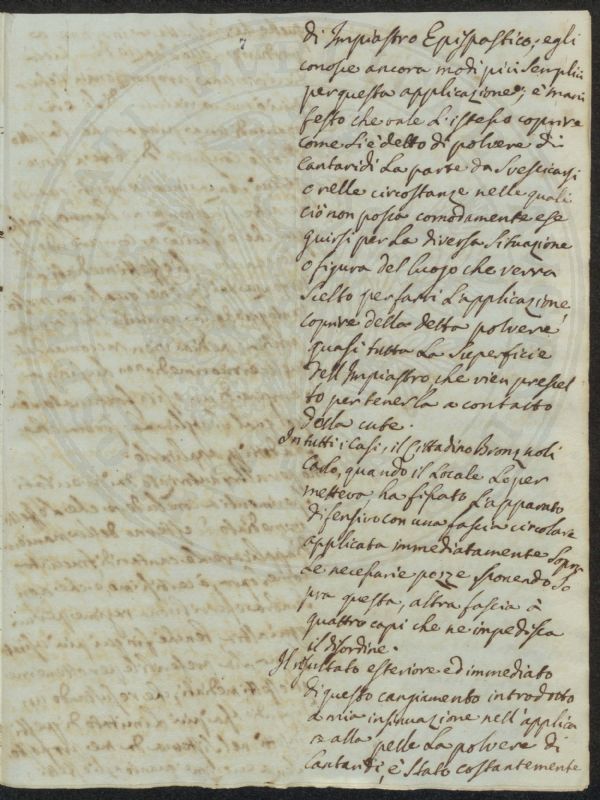 7
di Impiastro Epispastico; egli
conosce ancora modi più semplici
per questa applicazione; è mani
festo che vale l'istesso coprire
come si è detto di polvere di
cantaridi la parte da svescicarsi
o nelle circostanze nelle quali
ciò non possa comodamente ese
guirsi per la diversa situazione
o figura del luogo che verrà
scelto per farvi l'applicazione,
coprire della detta polvere
quasi tutta la superficie
dell'Impiastro che vien prescel
to per tenerla a contatto
della cute.
In tutti i casi, il Cittadino
quando il locale lo per
metteva ha fissato l'apparato
difensivo con una fascia circolare
applicata immediatamente sopra
le necessarie pezze ponendo so
pra questa, altra fascia à
quattro capi che ne impedisca
il disordine.
Il risultato esteriore ed immediato
di questo cangiamento introdotto
a mia insinuazione nell'applica
re alla pelle la polvere di
Cantaridi, è stato costantemente